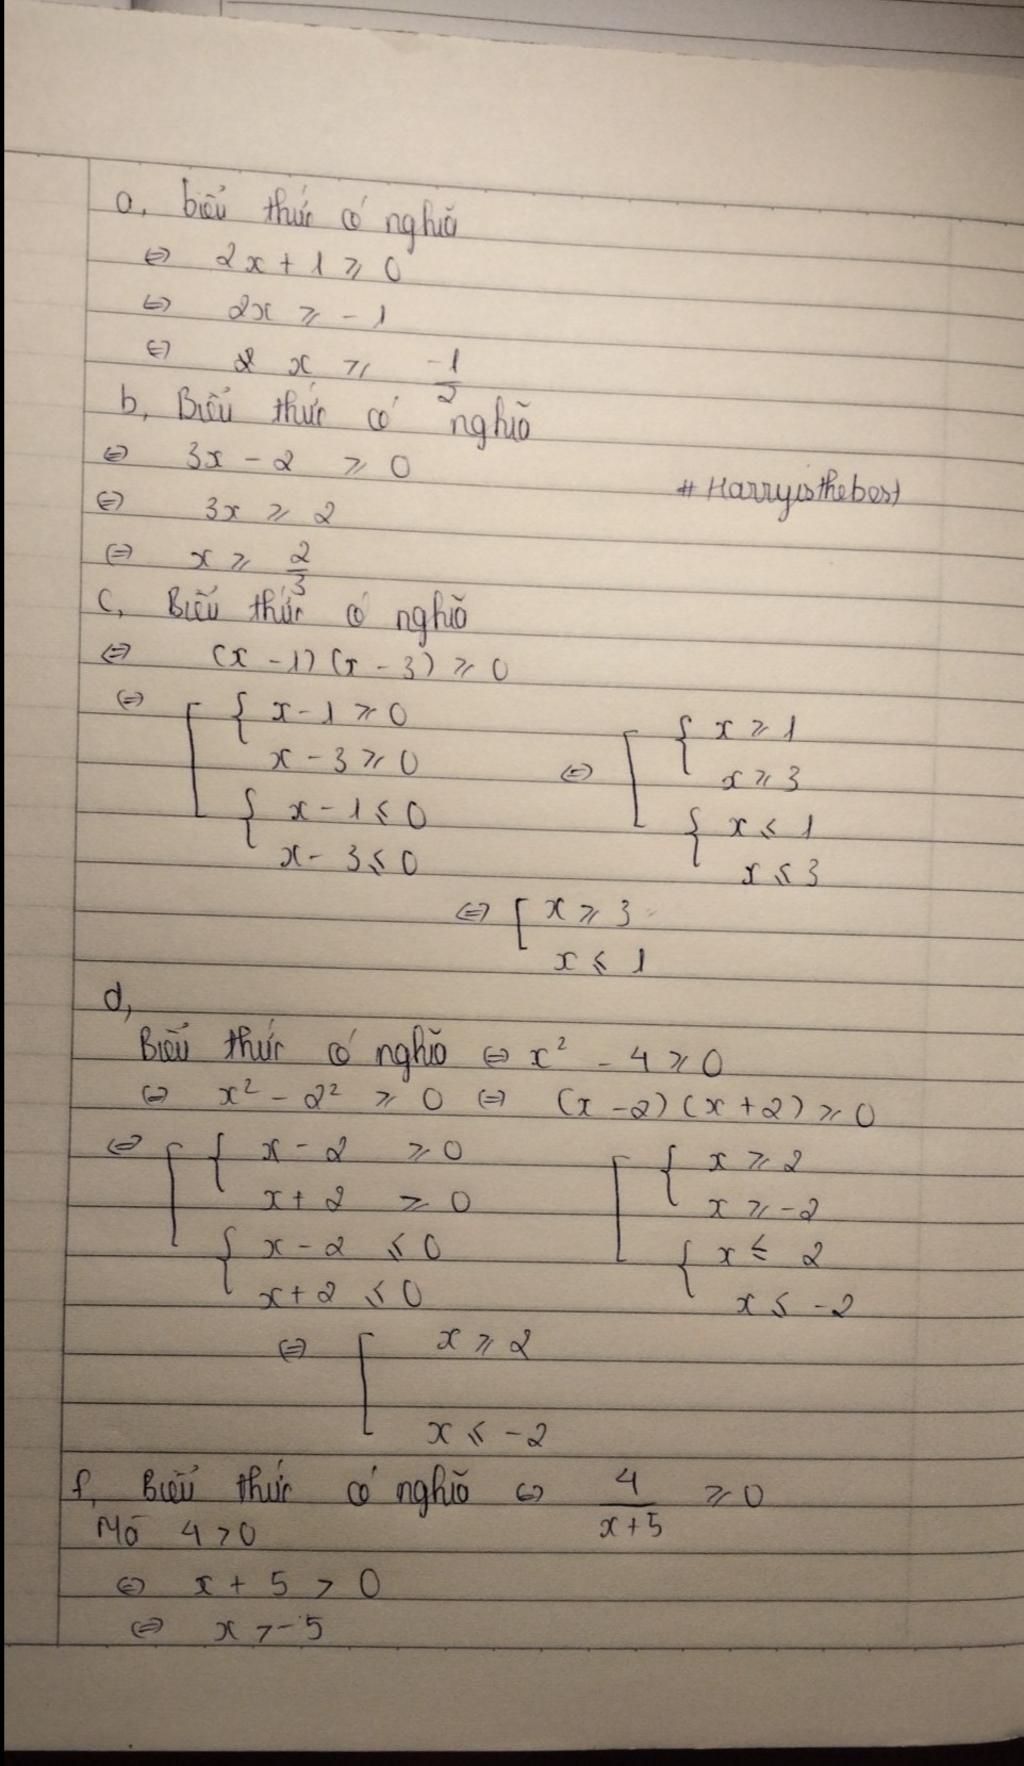 a, biểu thức có nghĩa
⇔ 2x + 1 ⩾ 0
⇔ 2x ⩾ -1
⇔ x ⩾ -1/2
b, Biểu thức có nghĩa
⇔ 3x - 2 ⩾ 0
# Harryisthebest
⇔ 3x ⩾ 2
⇔ x ⩾ 2/3
c, Biểu thức có nghĩa
⇔ (x - 1)(x - 3) ⩾ 0
⇔ [ { x - 1 ⩾ 0
x - 3 ⩾ 0
{ x - 1 ⩽ 0
x - 3 ⩽ 0
⇔ [ { x ⩾ 1
x ⩾ 3
{ x ⩽ 1
x ⩽ 3
⇔ [ x ⩾ 3
x ⩽ 1
d,
Biểu thức có nghĩa ⇔ x² - 4 ⩾ 0
⇔ x² - 2² ⩾ 0 ⇔ (x - 2)(x + 2) ⩾ 0
⇔ [ { x - 2 ⩾ 0
x + 2 ⩾ 0
{ x - 2 ⩽ 0
x + 2 ⩽ 0
[ { x ⩾ 2
x ⩾ -2
{ x ≤ 2
x ⩽ -2
⇔ [ x ⩾ 2
x ⩽ -2
f, Biểu thức có nghĩa ⇔ 4/(x+5) ⩾ 0
Mà 4 > 0
⇔ x + 5 > 0
⇔ x > -5